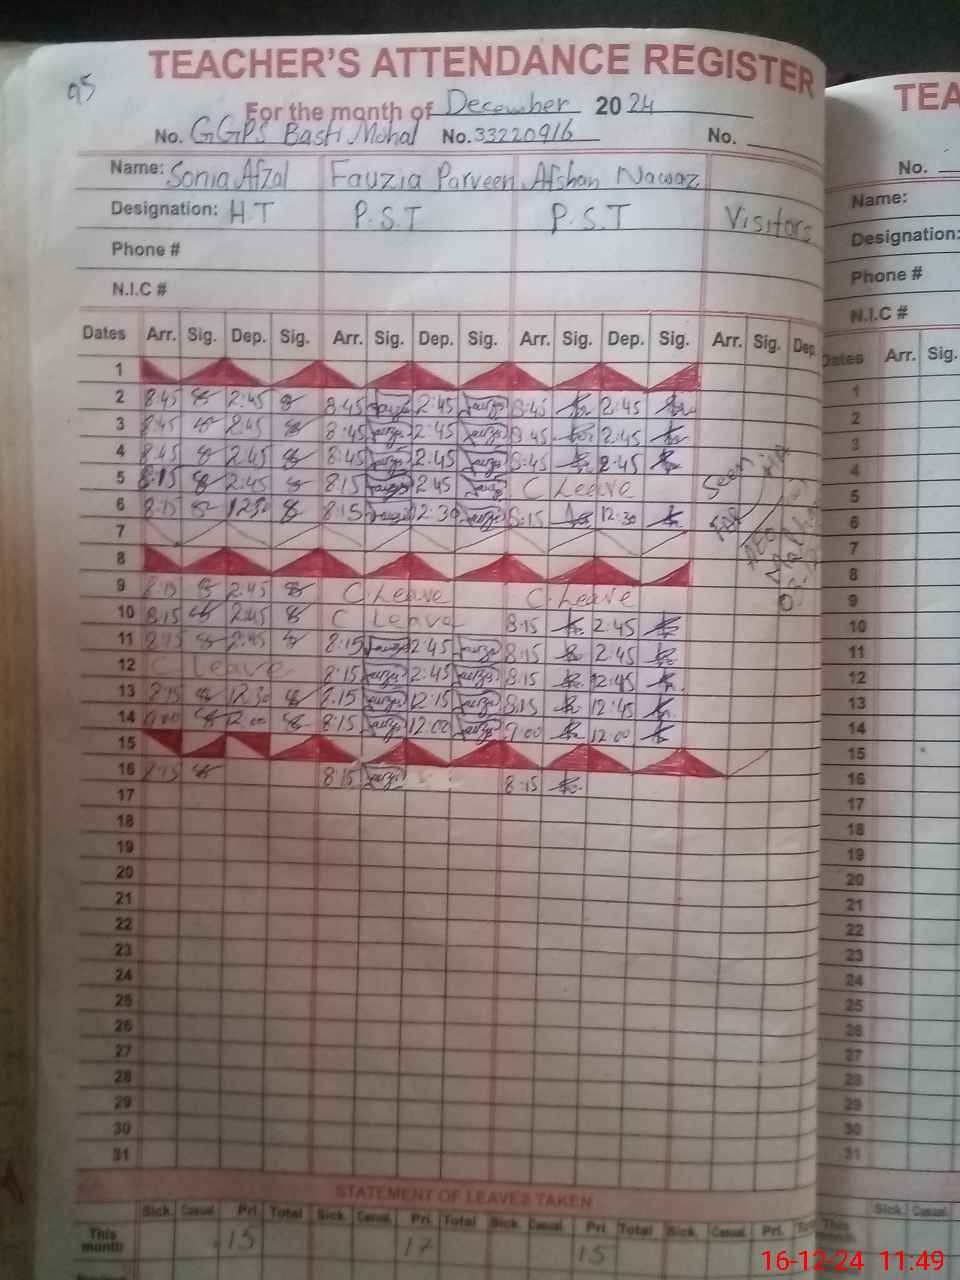 95
TEACHER'S ATTENDANCE REGISTER
For the month of December 2024
No. GGPS Basti Mohal No. 33220916 No.
Name: Sonia Afzal Fauzia Parveen Afshan Nawaz
Designation: H.T P.S.T P.S.T Visitors
Phone #
N.I.C #
Dates Arr. Sig. Dep. Sig. Arr. Sig. Dep. Sig. Arr. Sig. Dep. Sig. Arr. Sig. Dep
1
2 8:45 2:45 8:45 2:45 8:45 2:45
3 8:45 2:45 8:45 2:45 8:45 2:45
4 8:45 2:45 8:45 2:45 8:45 2:45
5 8:15 2:45 8:15 2:45 C Leave
6 8:15 12:30 8:15 12:30 8:15 12:30
7
8
9 8:15 2:45 C.Leave C.Leave
10 8:15 2:45 C Leave 8:15 2:45
11 8:15 2:45 8:15 2:45 8:15 2:45
12 C Leave 8:15 2:45 8:15 12:45
13 8:15 12:30 8:15 12:15 8:15 12:45
14 9:00 12:00 8:15 12:00 9:00 12:00
15
16 8:15 8:15 8:15
17
18
19
20
21
22
23
24
25
26
27
28
29
30
31
Seen
STATEMENT OF LEAVES TAKEN
Sick. Casual. Pri. Total Sick. Casual. Pri. Total Sick. Casual. Pri. Total Sick. Casual. Pri.
This month 15 17 15
TEA
No.
Name:
Designation:
Phone #
N.I.C #
Dates Arr. Sig.
1
2
3
4
5
6
7
8
9
10
11
12
13
14
15
16
17
18
19
20
21
22
23
24
25
26
27
28
29
30
31
Sick. Casual.
This month
16-12-24 11:49